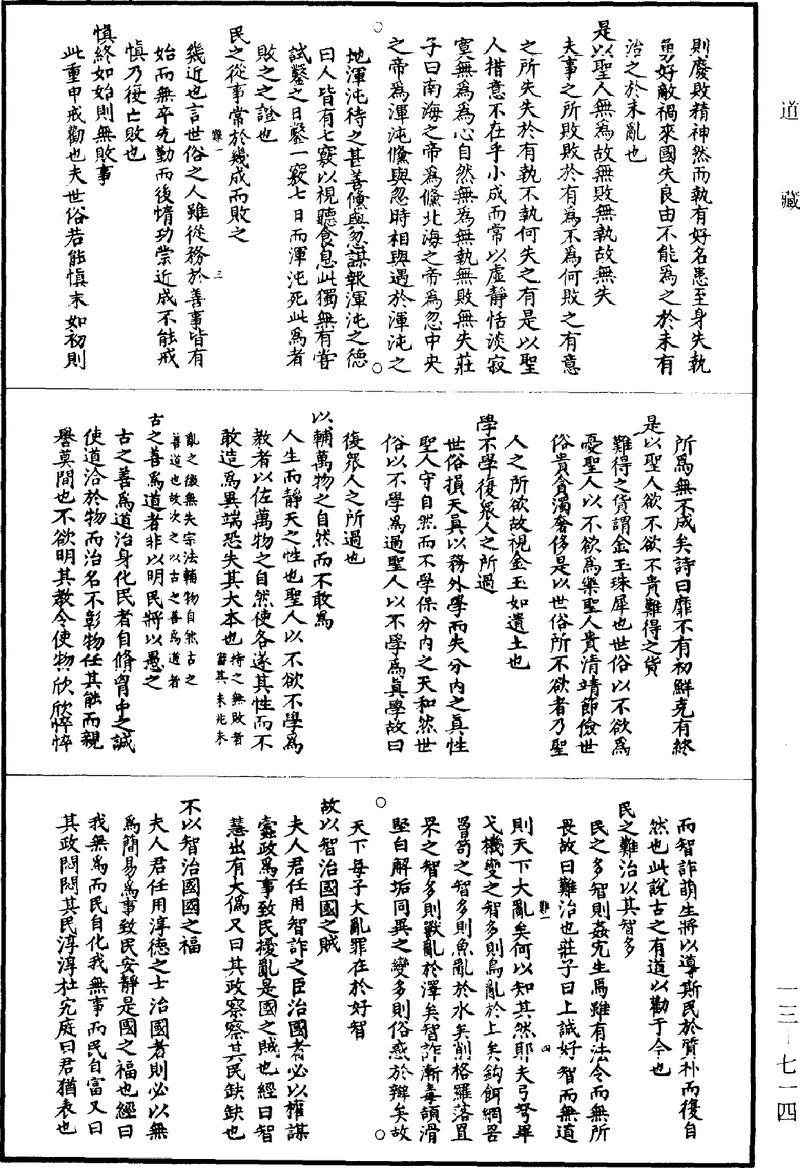 道藏
則廢敗精神然而執有好名患至身失執
勇好敵禍來國失良由不能為之於未有
治之於未亂也
是以聖人無為故無敗無執故無失
夫事之所敗敗於有為不為何敗之有意
之所失失於有執不執何失之有是以聖
人措意不在乎小成而常以虛靜恬淡寂
寞無為為心自然無為無執無敗無失莊
子曰南海之帝為儵北海之帝為忽中央
之帝為渾沌儵與忽時相與遇於渾沌之
地渾沌待之甚善儵與忽謀報渾沌之德
曰人皆有七竅以視聽食息此獨無有嘗
試鑿之日鑿一竅七日而渾沌死此為者
敗之之證也
民之從事常於幾成而敗之
幾近也言世俗之人雖從務於善事皆有
始而無卒先勤而後惰功業近成不能戒
慎乃復亡敗也
慎終如始則無敗事
此重申戒勸也夫世俗若能慎末如初則
三
所為無不成矣詩曰靡不有初鮮克有終
是以聖人欲不欲不貴難得之貨
難得之貨謂金玉珠犀也世俗以不欲為
憂聖人以不欲為樂聖人貴清靖節儉世
俗貴貪濁奢侈是以世俗所不欲者乃聖
人之所欲故視金玉如遺土也
學不學復眾人之所過
世俗損天真以務外學而失分內之真性
聖人守自然而不學保分內之天和然世
俗以不學為過聖人以不學為真學故曰
復眾人之所過也
以輔萬物之自然而不敢為
人生而靜天之性也聖人以不欲不學為
教者以佐萬物之自然使各遂其性而不
敢造為異端恐失其大本也持之無敗者
謀其未兆未
亂之後無失宗法輔物自然古之
善道也故次之以古之善為道者
古之善為道者非以明民將以愚之
古之善為道治身化民者自脩胷中之誠
使道洽於物而治名不彰物任其能而親
譽莫間也不欲明其教令使物欣欣悴悴
而智詐萌生將以導斯民於質朴而復自
然也此說古之有道以勸于今也
民之難治以其智多
民之多智則姦宄生焉雖有法令而無所
畏故曰難治也莊子曰上誠好智而無道
則天下大亂矣何以知其然耶夫弓弩畢
弋機變之智多則鳥亂於上矣鈎餌網罟
罾笱之智多則魚亂於水矣削格羅落罝
罘之智多則獸亂於澤矣智詐漸毒頡滑
堅白解垢同異之變多則俗惑於辯矣故
天下每子大亂罪在於好智
故以智治國國之賊
夫人君任用智詐之臣治國者必以權謀
蠹政為事致民擾亂是國之賊也經曰智
慧出有大偽又曰其政察察其民缺缺也
不以智治國國之福
夫人君任用淳德之士治國者則必以無
為簡易為事致民安靜是國之福也經曰
我無為而民自化我無事而民自富又曰
其政悶悶其民淳淳杜宄庭曰君猶表也
四
一三-七一四